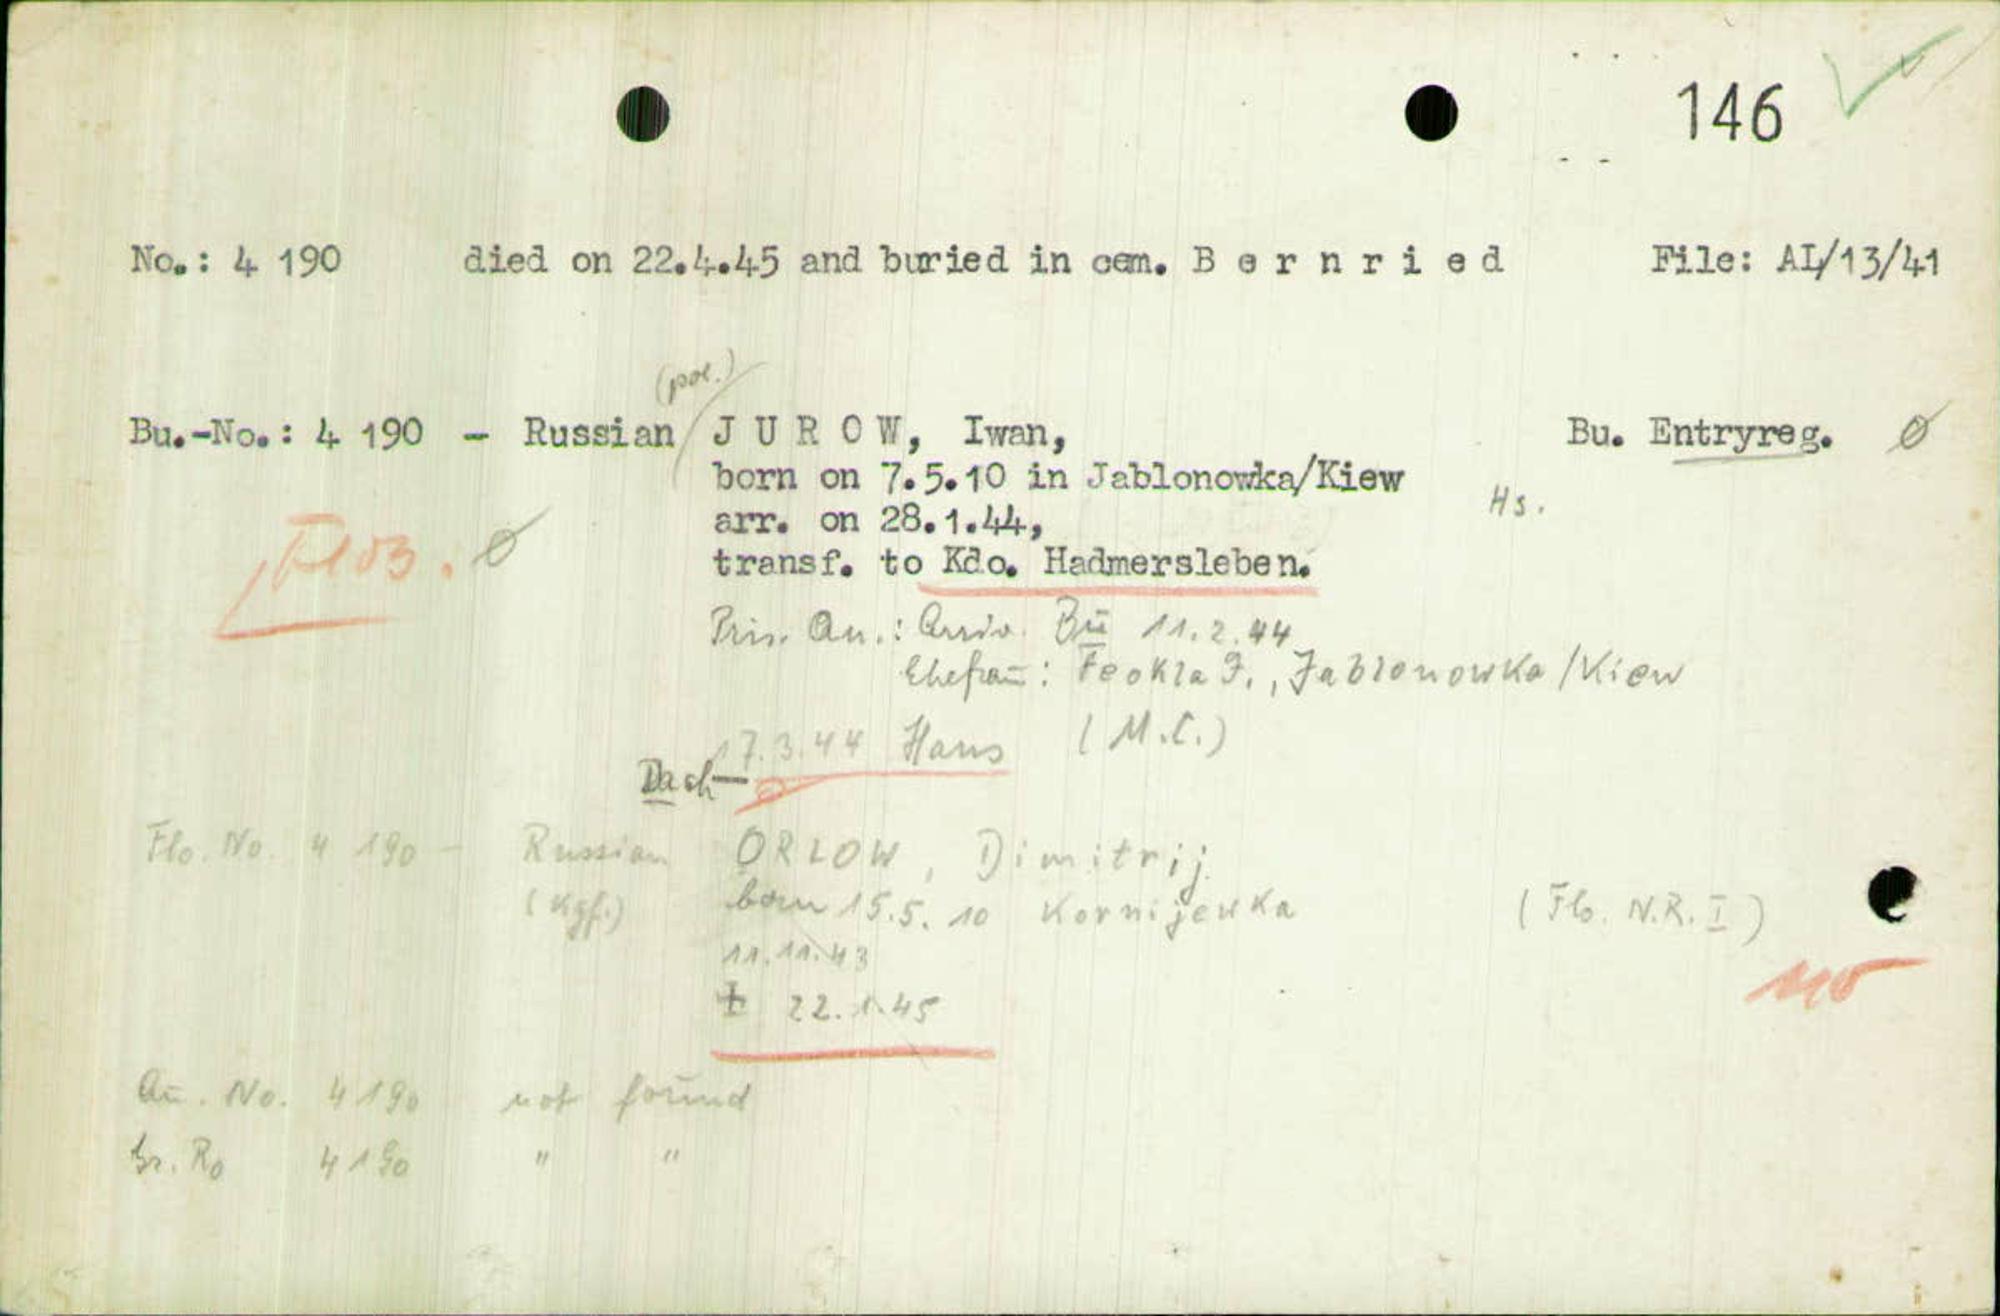 146
No.: 4 190 died on 22.4.45 and buried in cem. B e r n r i e d File: AL/13/41
(pol.)
Bu.-No.: 4 190 - Russian J U R O W, Iwan, Bu. Entryreg. Ø
born on 7.5.10 in Jablonowka/Kiew
Hs.
arr. on 28.1.44,
Flos. Ø
transf. to Kdo. Hadmersleben.
Pris. Au.: Arriv. Bu 11.2.44
Ehefrau: Feokla J., Jablonowka/Kiew
17.3.44 Hans (M.C.)
Dach-
Flo. No. 4 190 - Russian ORLOW, Dimitrij
(Kgf.) born 15.5.10 Kornijewka (Flo. N.R. I)
11.11.43
+ 22.1.45
Au. No. 4190 not found
Gr. Ro 4190 " "